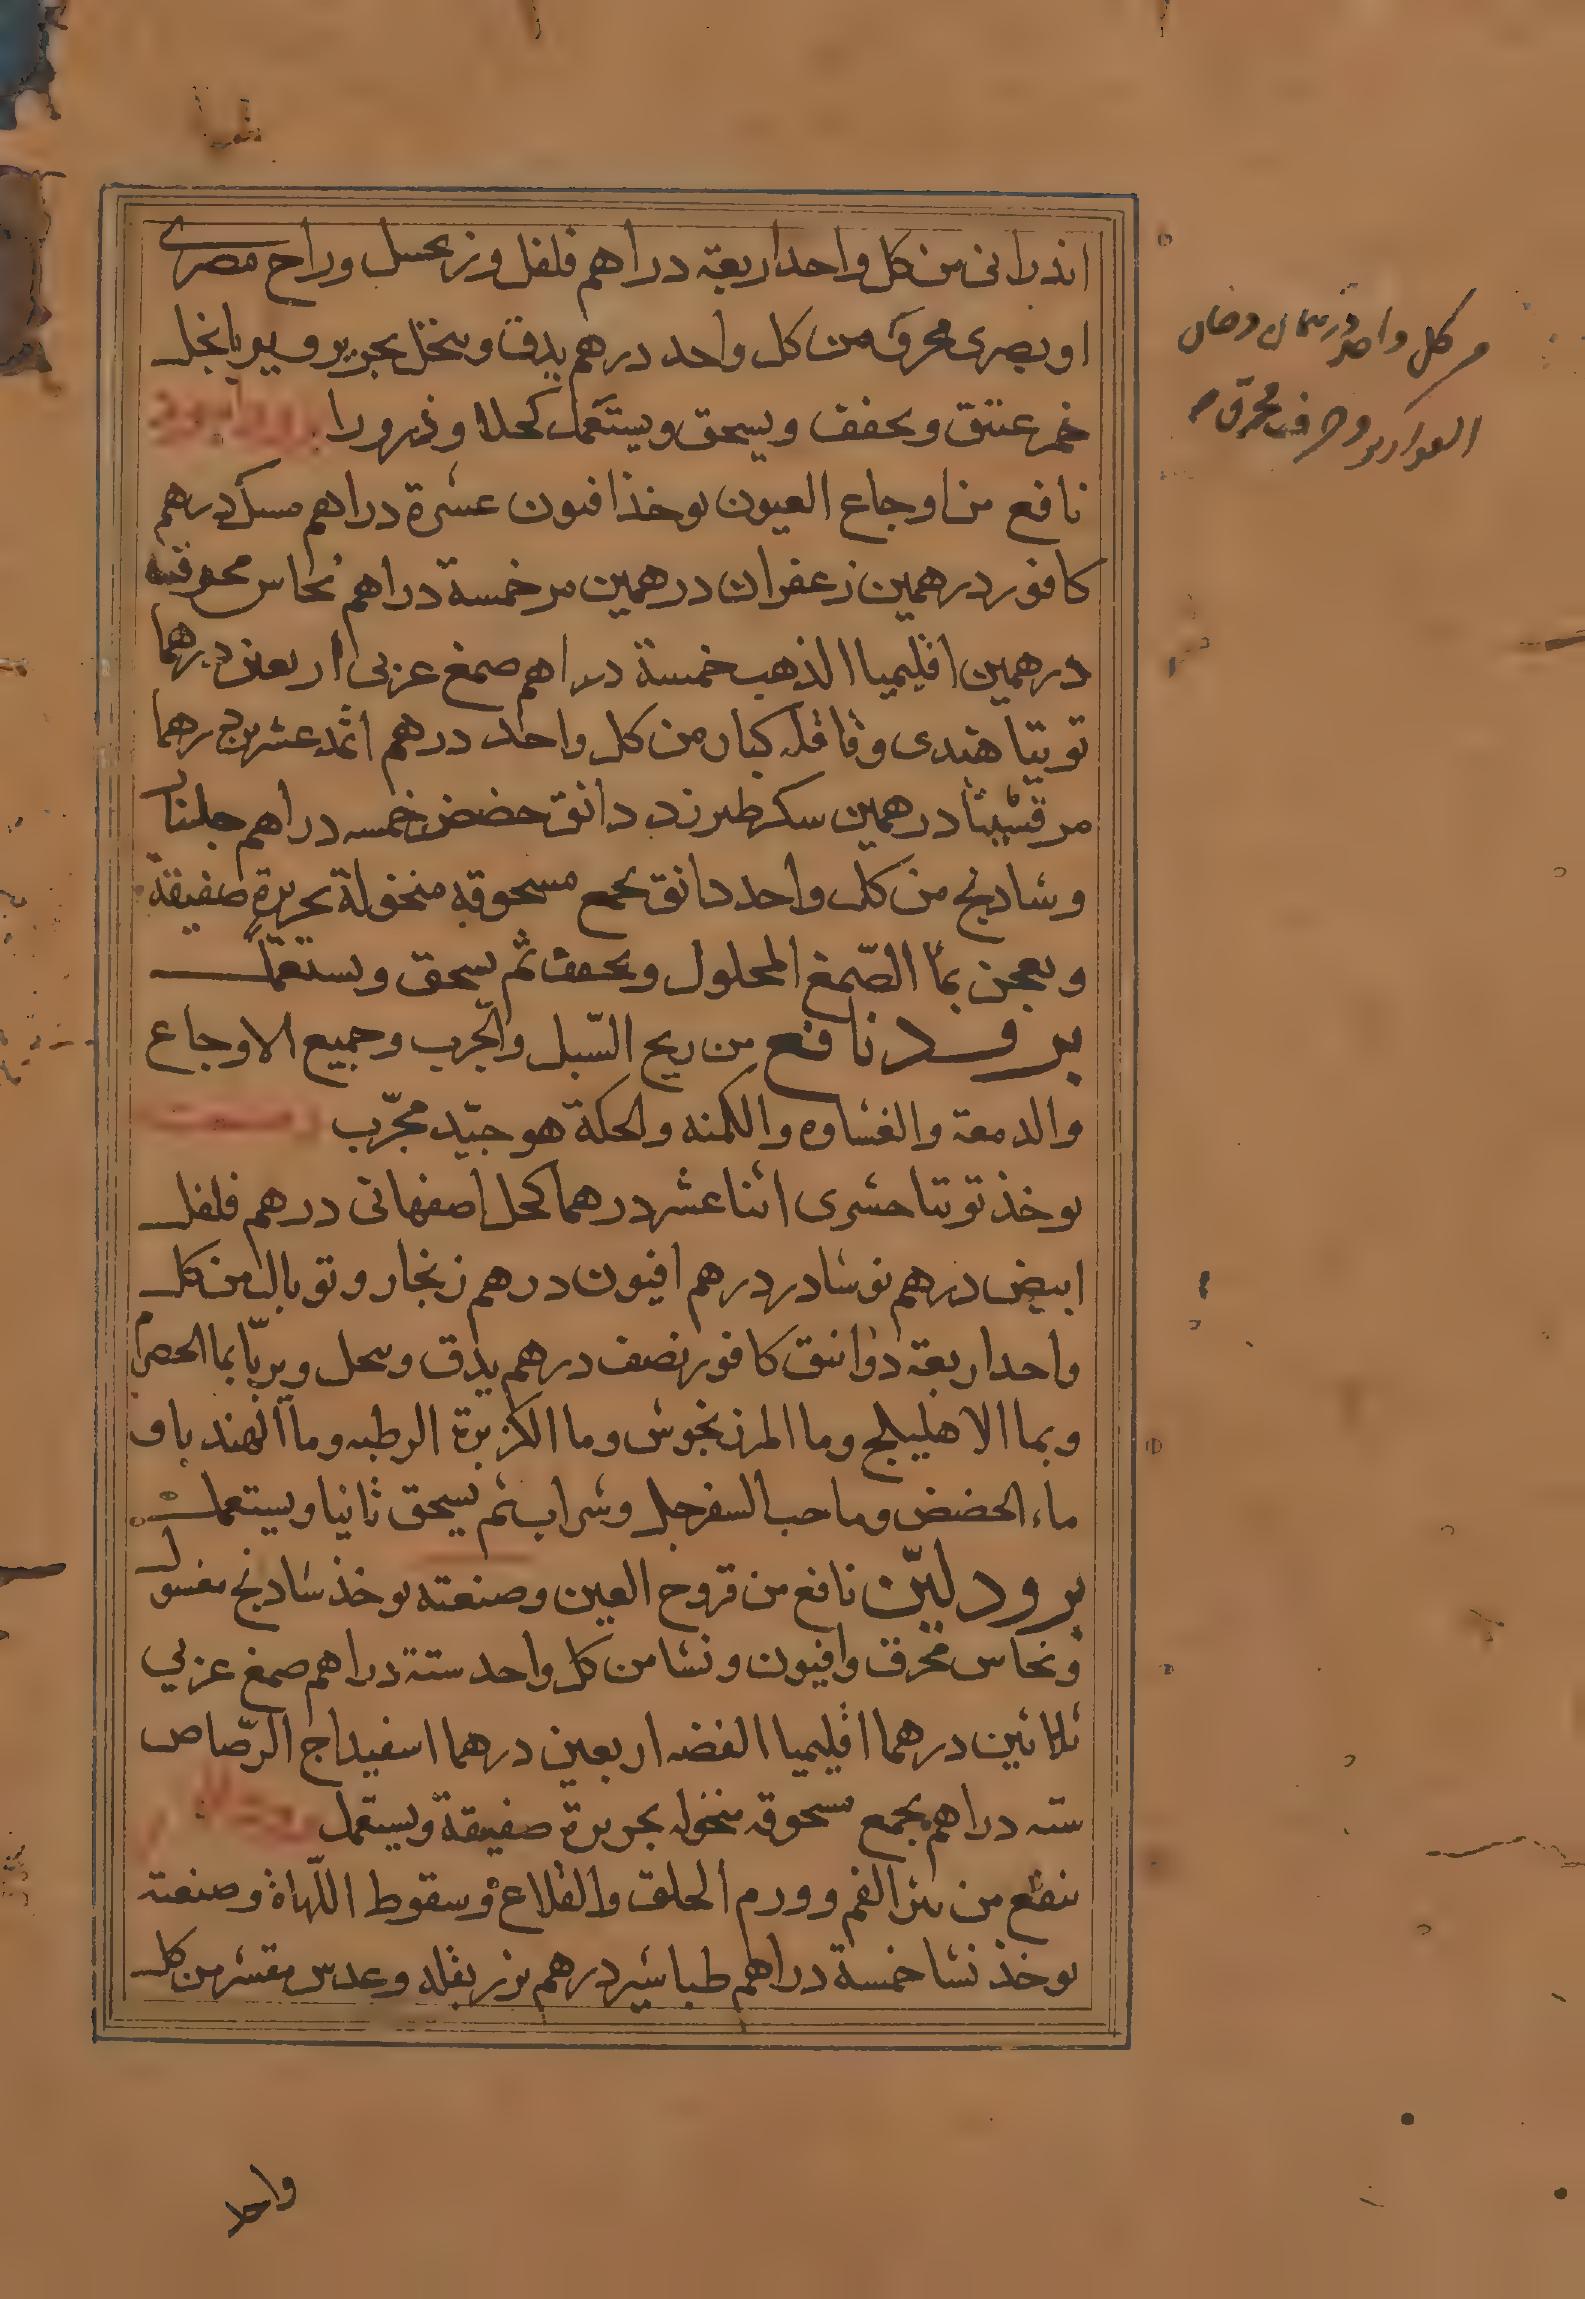 اندرانى من كل واحد اربعة دراهم فلفل وزنجبيل وزاج مصرى
او بصرى محرق من كل واحد درهم يدق وينخل بحرير ويربا بخل
خمر عتيق ويجفف ويسحق ويستعمل كحلا وذرورا
نافع من اوجاع العيون يوخذ افيون عشرة دراهم مسك درهم
كافور درهمين زعفران درهمين مر خمسة دراهم نحاس محرق
درهمين اقليميا الذهب خمسة دراهم صمغ عربى اربعين درهما
توتيا هندى وقاقله كبار من كل واحد درهم اثمد عشرين درهما
مرقشيثا درهمين سكر طبرزد دانق حضض خمسه دراهم جلنار
وشادنج من كل واحد دانق يجمع مسحوقه منخولة بحريرة صفيقة
ويعجن بما الصّمغ المحلول ويجفف ثم يسحق ويستعمل
برود نافع من ريح السّبل والجرب وجميع الاوجاع
والدمعة والغشاوه والكمنه والحكة هو جيّد مجرّب
يوخذ توتيا حشرى اثنا عشر درهما كحل اصفهانى درهم فلفل
ابيض درهم نوشادر درهم افيون درهم زنجار وتوبال من كل
واحد اربعة دوانيق كافور نصف درهم يدق وينخل ويربّا بما الحصرم
وبما الاهليلج وما المرزنجوش وما الكزبرة الرطبه وما الهندبا و
ماء الحضض وما حب السفرجل وشراب ثم يسحق ثانيا ويستعمل
برود ليّن نافع من قروح العين وصنعته يوخذ شادنج مغسول
ونحاس محرق وافيون ونشا من كل واحد ستة دراهم صمغ عربي
ثلاثين درهما اقليميا الفضه اربعين درهما اسفيداج الرّصاص
سته دراهم يجمع مسحوقه منخوله بحريرة صفيقة ويستعمل
ينفع من بثر الفم وورم الحلق والقلاع وسقوط اللّهاة وصنعته
يوخذ نشا خمسة دراهم طباشير درهم بزر بقله وعدس مقشر من كل
واحد
كل واحد
محرق